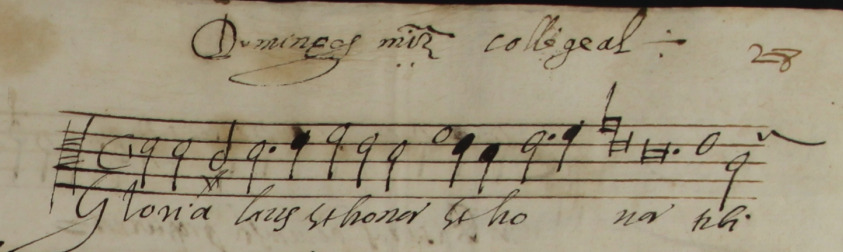 Domingos mĩz collegeal
28
Gloria laus et honor et ho nor tibi